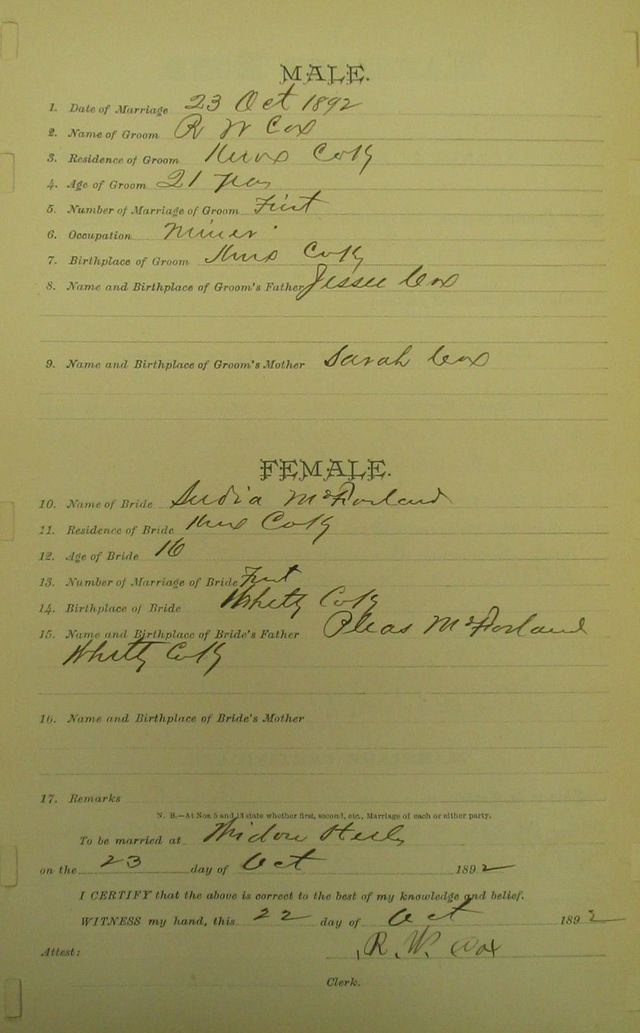 MALE.
1. Date of Marriage 23 Oct 1892
2. Name of Groom R W Cox
3. Residence of Groom Knox Co Ky
4. Age of Groom 21 years
5. Number of Marriage of Groom First
6. Occupation Miner
7. Birthplace of Groom Knox Co Ky
8. Name and Birthplace of Groom's Father Jessee Cox
9. Name and Birthplace of Groom's Mother Sarah Cox
FEMALE.
10. Name of Bride McFarland
11. Residence of Bride Knox Co Ky
12. Age of Bride 16
13. Number of Marriage of Bride First
14. Birthplace of Bride Whitly Co Ky
15. Name and Birthplace of Bride's Father Pleas McFarland
Whitly Co Ky
16. Name and Birthplace of Bride's Mother
17. Remarks
N. B.—At Nos. 5 and 13 state whether first, second, etc., Marriage of each or either party.
To be married at Widow
on the 23 day of Oct 1892
I CERTIFY that the above is correct to the best of my knowledge and belief.
WITNESS my hand, this 22 day of Oct 1892
R. W. Cox
Attest:
Clerk.